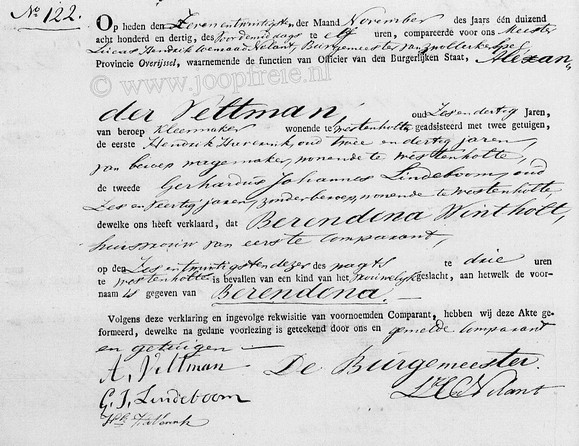 No. 122.
Op heden den Zevenentwintigsten der Maand November des Jaars één duizend
acht honderd en dertig, des voormiddags te elf uren, compareerde voor ons Meester
Lucas Hendrik Vilant, Burgemeester van Zwollerkerspel
Provincie Overijssel, waarnemende de functien van Officier van den Burgerlijken Staat, Alexan„
© www.joopfreie.nl
der Veltman oud Zes en dertig Jaren,
van beroep Kleermaker wonende te Westenholte geadsisteerd met twee getuigen,
de eerste Hendrik oud twee en dertig jaren,
van beroep wagemaker, wonende te Westenholte,
de tweede Gerhardus Johannes Lindeboom, oud
Zes en veertig jaren, zonder beroep, wonende te Westenholte
dewelke ons heeft verklaard, dat Berendina Wintholt,
huisvrouw van eerste comparant,
op den Zes entwintigsten dezer des nagts te drie uren
te Westenholte is bevallen van een kind van het vrouwelijk geslacht, aan hetwelk de voor-
naam is gegeven van Berendina.
Volgens deze verklaring en ingevolge rekwisitie van voornoemden Comparant, hebben wij deze Akte ge-
formeerd, dewelke na gedane voorlezing is geteekend door ons en gemelde comparant
en getuigen
A. Veltman De Burgemeester.
G. J. Lindeboom